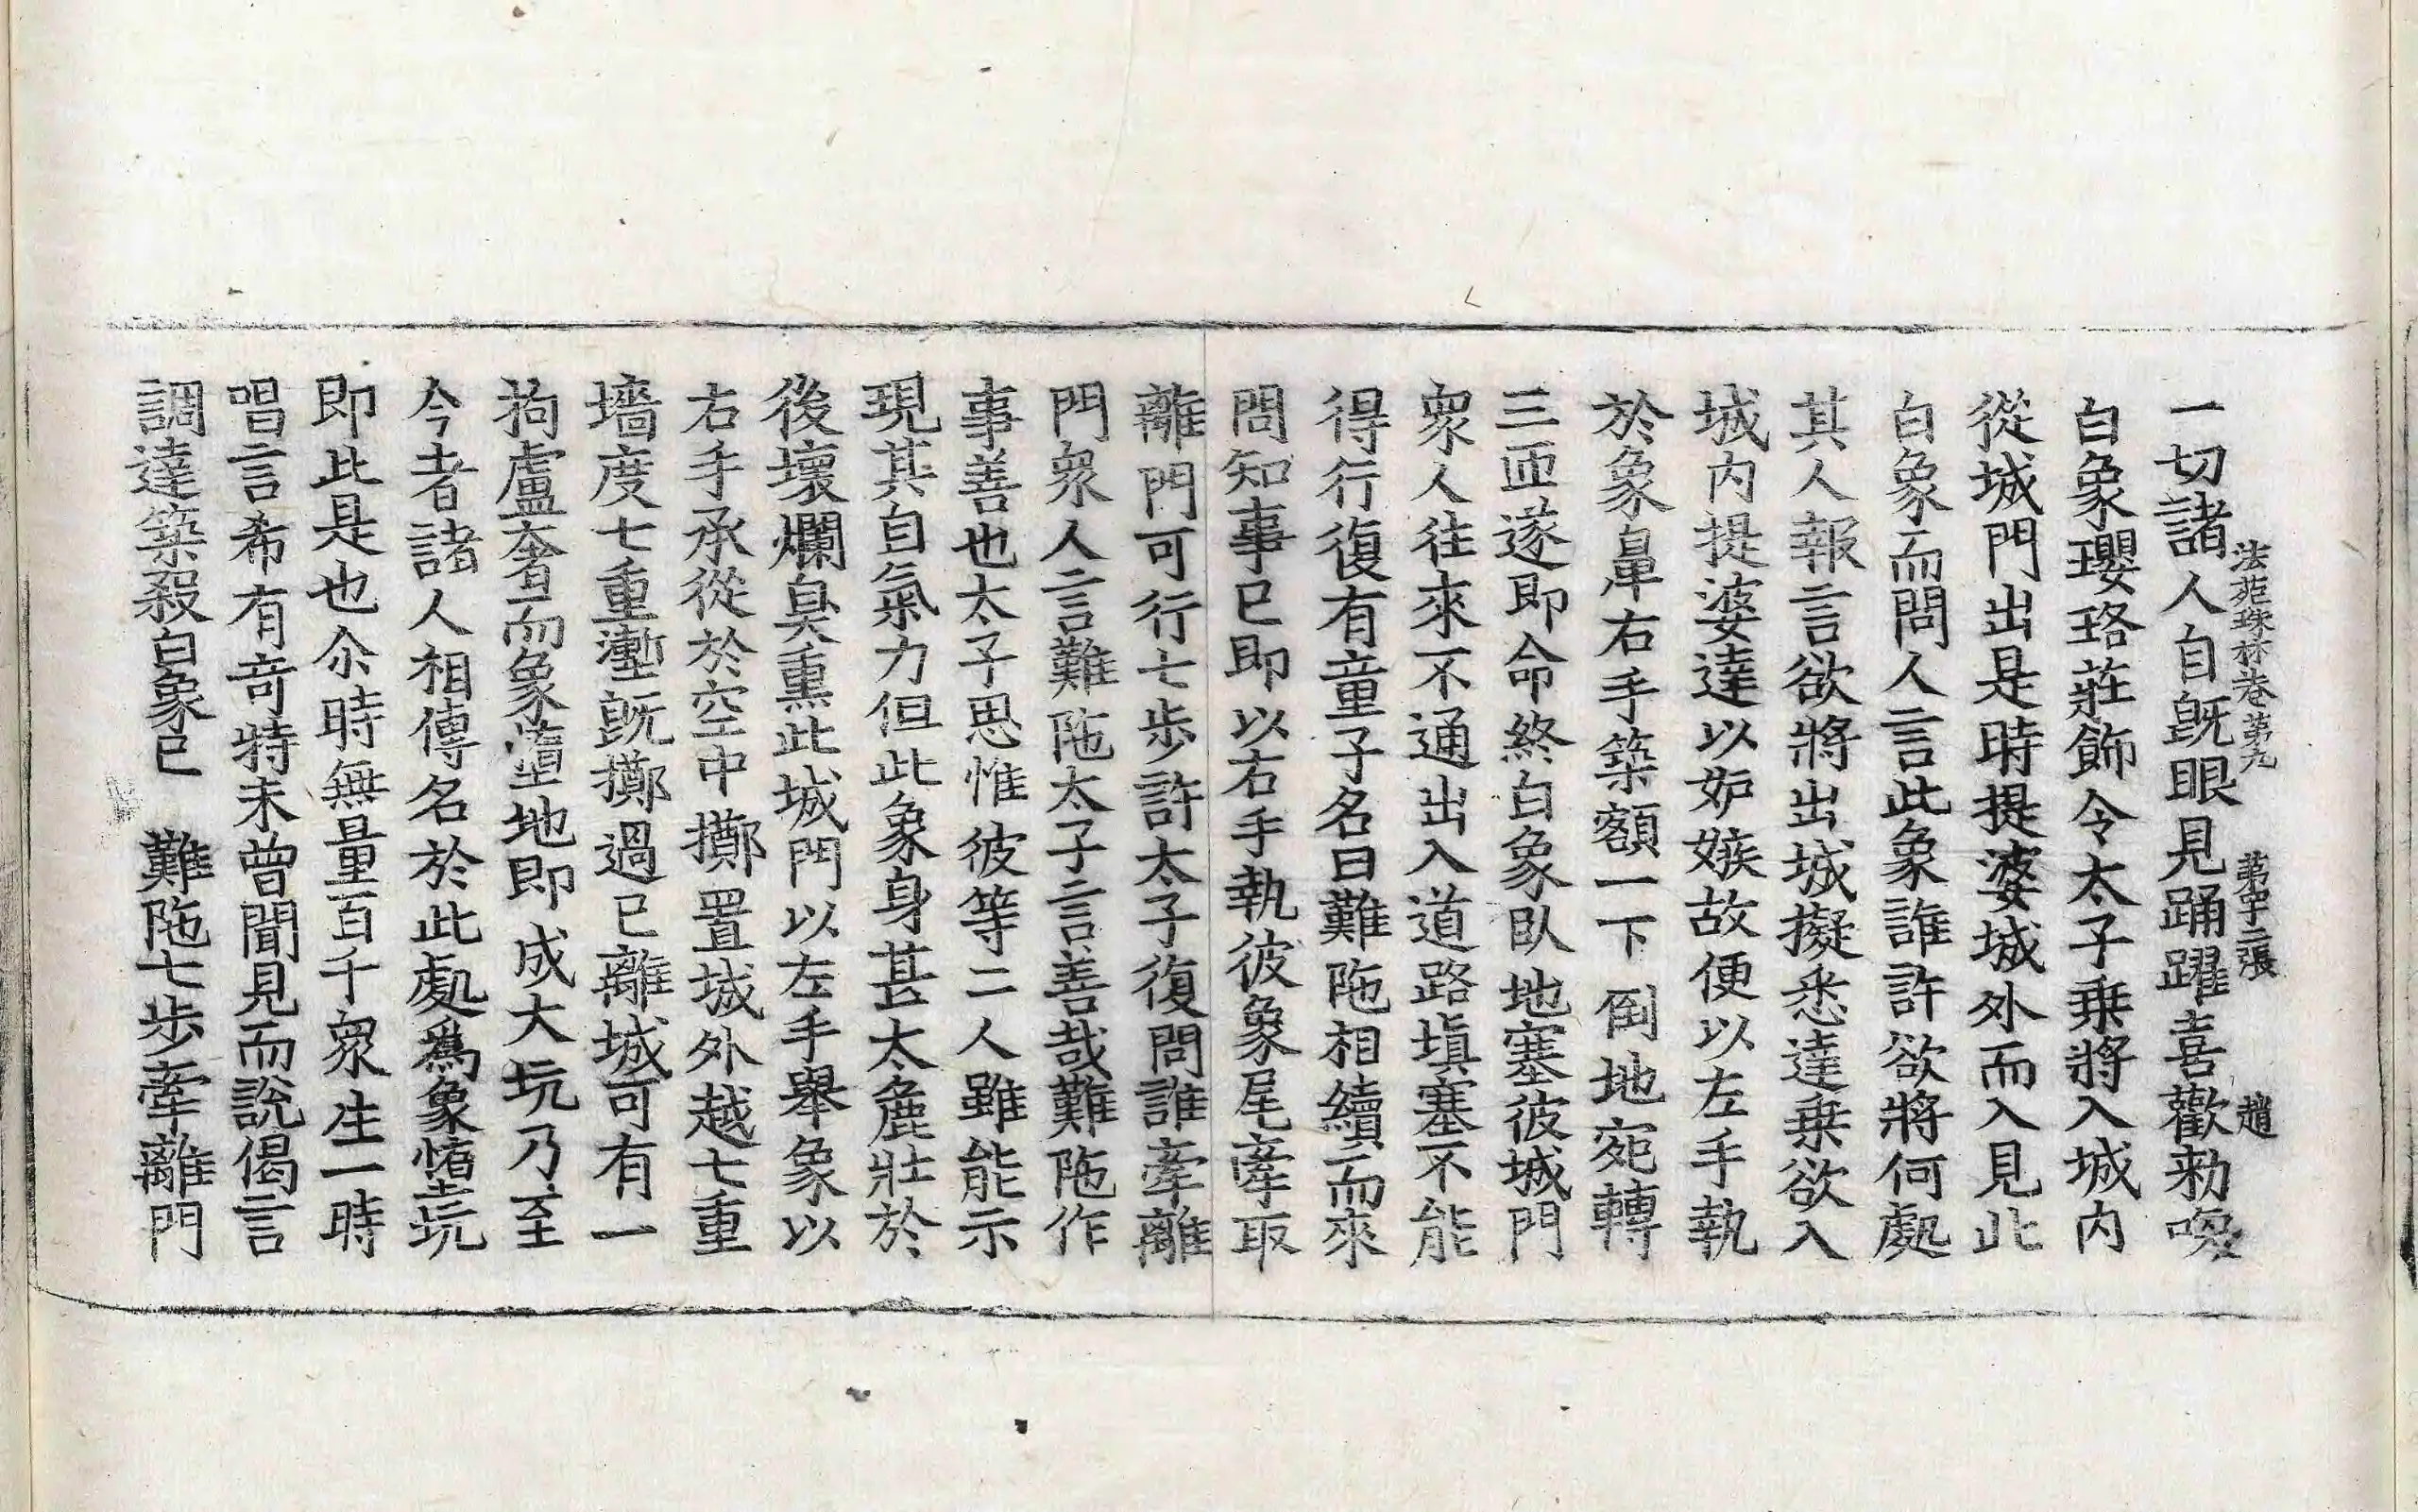 法苑珠林卷第九 第十二張 趙
一切諸人自既眼見踊躍喜歡勑喚
白象瓔珞莊飾令太子乗將入城内
從城門出是時提婆城外而入見此
白象而問人言此象誰許欲將何處
其人報言欲將出城擬悉達乗欲入
城内提婆達以妒嫉故便以左手執
於象鼻右手築額一下倒地宛轉
三匝遂即命終白象臥地塞彼城門
衆人往來不通出入道路塡塞不能
得行復有童子名曰難陁相續而來
問知事已即以右手執彼象尾牽取
離門可行七步許太子復問誰牽離
門衆人言難陁太子言善哉難陁作
事善也太子思惟彼等二人雖能示
現其自氣力但此象身甚太麁壯於
後壞爛臭熏此城門以左手舉象以
右手承從於空中擲置城外越七重
墻度七重壍旣擲過已離城可有一
拘盧奢而象墮地即成大坑乃至
今者諸人相傳名於此處爲象墮坑
即此是也尒時無量百千衆生一時
唱言希有竒特未曾聞見而說偈言
調達築殺白象已　難陁七步牽離門